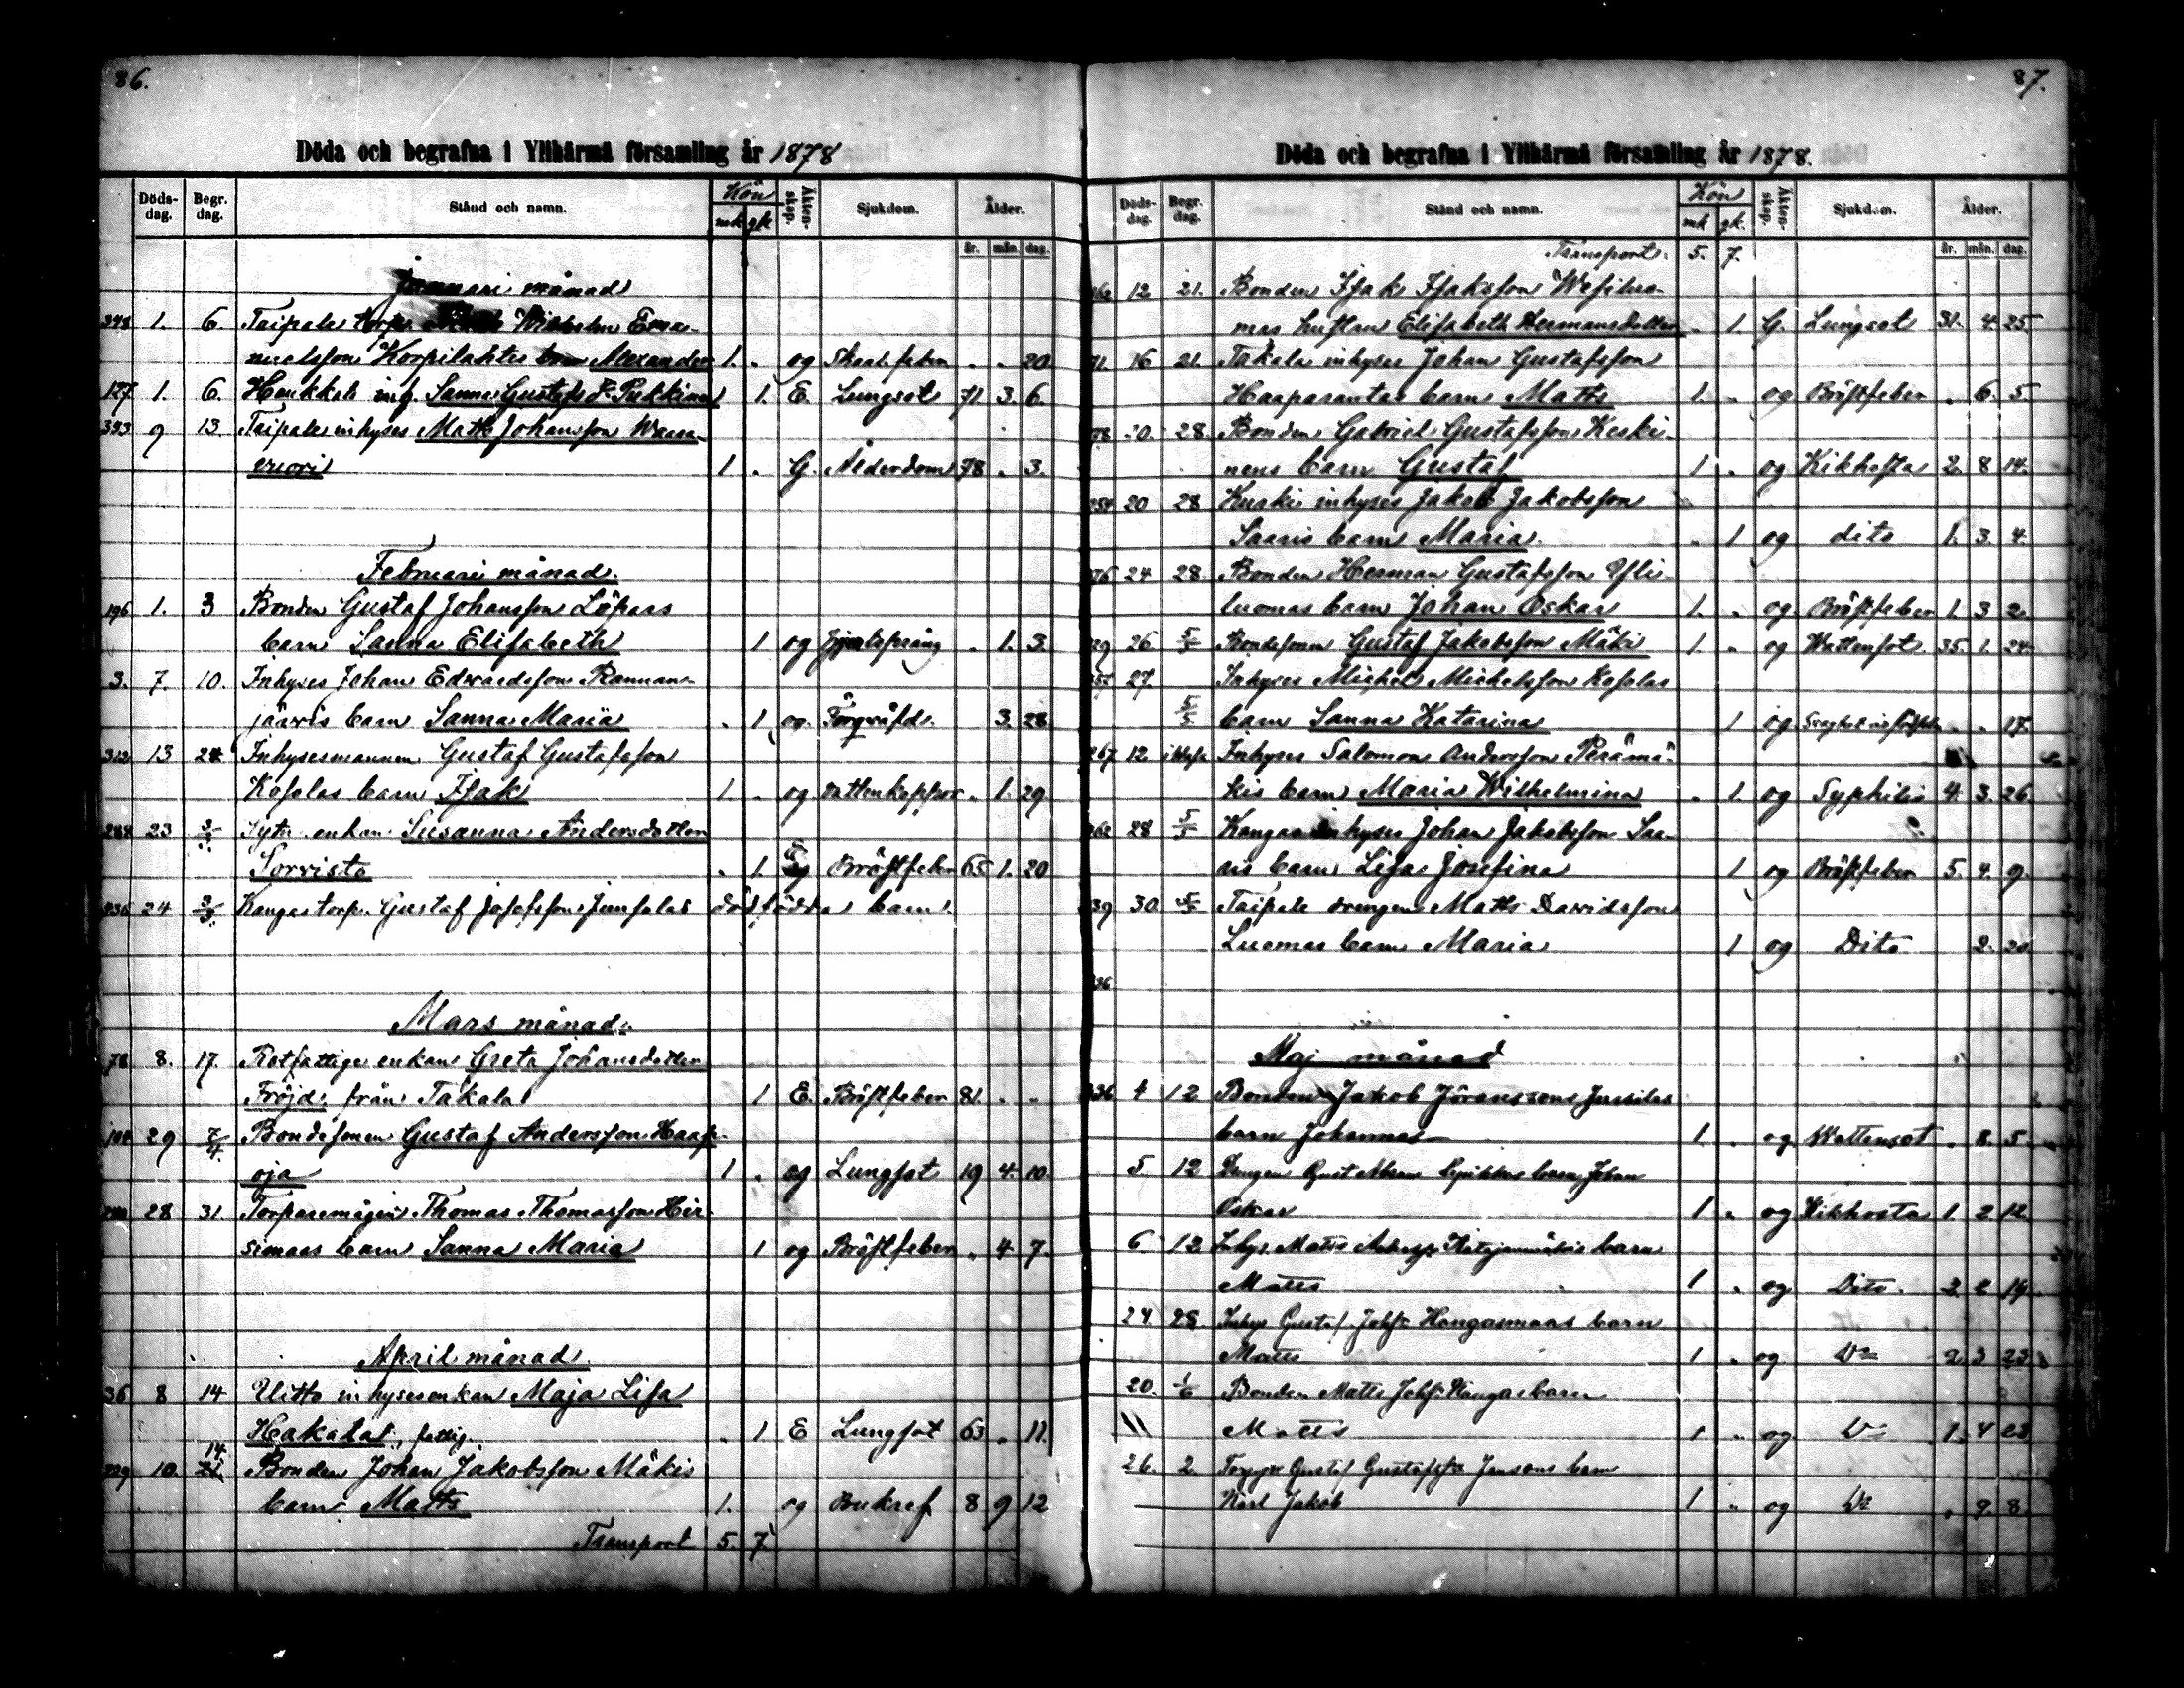 86.
Döda och begrafna i Ylihärmä församling år 1878
Döds-dag. Begr. dag. Stånd och namn. Kön mk gk Äkten-skap. Sjukdom. Ålder.
år. mån. dag.
Januari månad
348 1. 6. Taipale torp. Wilhelm Ema-
nuelsson Korpilahtis Alexander 1. " og 20.
127 1. 6. Sanna Gustafsd. Pukkinen 1. E. Lungsot 71 3. 6.
353 9 13 Taipale inhyses Matts Johansson Waara-
vuori 1 " G. Ålderdom 78 " 3.
Februari månad.
196 1. 3 Bonden Gustaf Johansson Löpars
barn Sanna Elisabeth 1 og " 1. 3.
3. 7. 10. Inhyses Johan Edvardsson Rannan-
järvis barn Sanna Maria " 1 og 3. 28
312 13 24 Inhysesmannen Gustaf Gustafsson
Kosolas barn Isak 1. " og vattenkoppor " 1. 29
288 23 3/3 Sytn. enkan Susanna Andersdotter
Sorvisto " 1. Bröstfeber 65 1. 20
236 24 3/3 Kangas torp. Gustaf Josefsson dödfödda barn.
Mars månad.
78 8. 17. Rotfattige enkan Greta Johansdotter
Fröjd, från Takala 1 E. Bröstfeber 81. " "
29 7/4. Bondesonen Gustaf Andersson Haap-
oja 1 " og Lungsot 19 4. 10
28 31 Torparemågen Thomas Thomasson Hir-
simaas barn Sanna Maria 1 og Bröstfeber " 4 7.
April månad.
36 8 14 Uitto inhysesenkan Maja Lisa
Hakala, fattig. " 1 E Lungsot 63 " 11.
14.
229 10. 21 Bonden Johan Jakobsson Mäkis
barn Matts 1. og Bukref 8 9 12
Transport 5. 7.
87.
Döda och begrafna i Ylihärmä församling år 1878.
Döds-dag. Begr. dag. Stånd och namn. Kön mk gk. Äkten-skap. Sjukdom. Ålder.
år. mån. dag.
Transport. 5. 7.
12 21. Bonden Isak Isaksson Wesiluo-
mas hustru Elisabeth Hermansdotter " 1 G. Lungsot 31. 4 25
71. 16 21. Takala inhyses Johan Gustafsson
Haaparantas barn Matts 1. " og Bröstfeber " 6. 5
78 20. 28. Bonden Gabriel Gustafsson Keski-
nens barn Gustaf 1 " og Kikhosta 2. 8 14.
254 20 28 Kuski inhyses Jakob Jakobsson
Saaris barn Maria. " 1 og dito 1. 3. 4.
76 24 28 Bonden Herman Gustafsson Yli-
luomas barn Johan Oskar 1. " og. Bröstfeber 1. 3 2.
229 26 5/5 Bondesonen Gustaf Jakobsson Mäki 1. " og Wattensot 35. 1. 24
27. Inhyses Michel Michelsson Kosolas
5/5 barn Sanna Katarina 1 og " " 17.
267 12 Inhyses Salomon Andersson Perämä-
kis barn Maria Wilhelmina " 1. og Syphilis 4. 3. 26.
262 28 5/5 Kangas inhyses Johan Jakobsson Saa-
ris barn Lisa Josefina 1 og Bröstfeber 5. 4. 9.
39 30. 5/5 Taipale drengen Matts Davidsson
Luomas barn Maria 1 og Dito 2. 20
336
Maj månad
336 4 12 Bonden Jakob Jöranssons Jussilas
barn Johannes 1 " og. Wattensot " 8. 5.
5. 12 Drengen Gust. barn Johan
Oskar 1 " og Kikhosta 1. 2 12
6 12 Inhys. Matts barn
Matts 1 " og Dito. 2 19
24 28 Inhys Gustaf Johs. Kangasmaas barn
Matts 1 " og Do 2. 3 23
20. 1/6 Bonden Matts Johs. Kangas barn
\\ Matts 1 " og Do 1. 4 23
26. 2. Gustaf Gustafss. Jensens barn
Karl Jakob 1 " og Do " 9. 8.